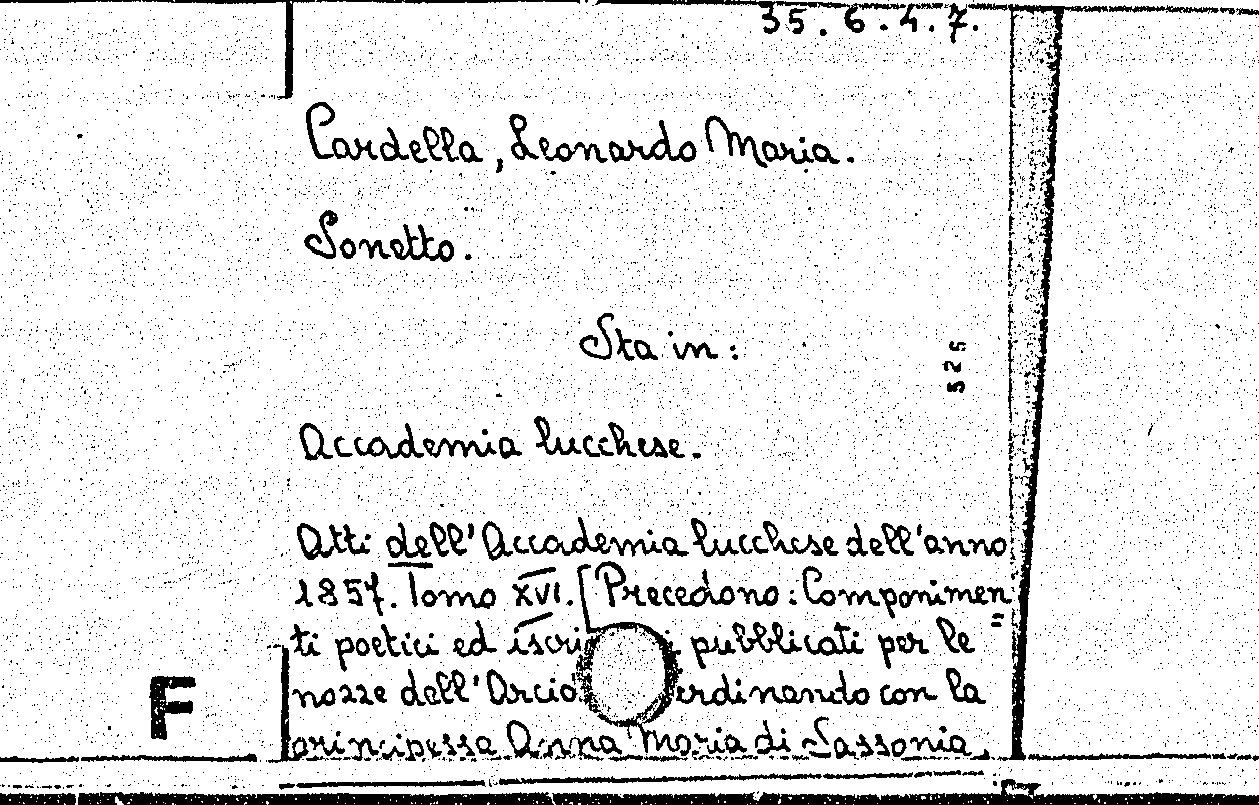 35.6.4.7.
Cardella, Leonardo Maria.
Sonetto.
Sta in:
525
Accademia lucchese.
Atti dell'Accademia lucchese dell'anno
1857. Tomo XVI. [Precedono: Componimen=
ti poetici ed iscri i pubblicati per le
nozze dell'Arcid erdinando con la
principessa Anna Maria di Sassonia.
F